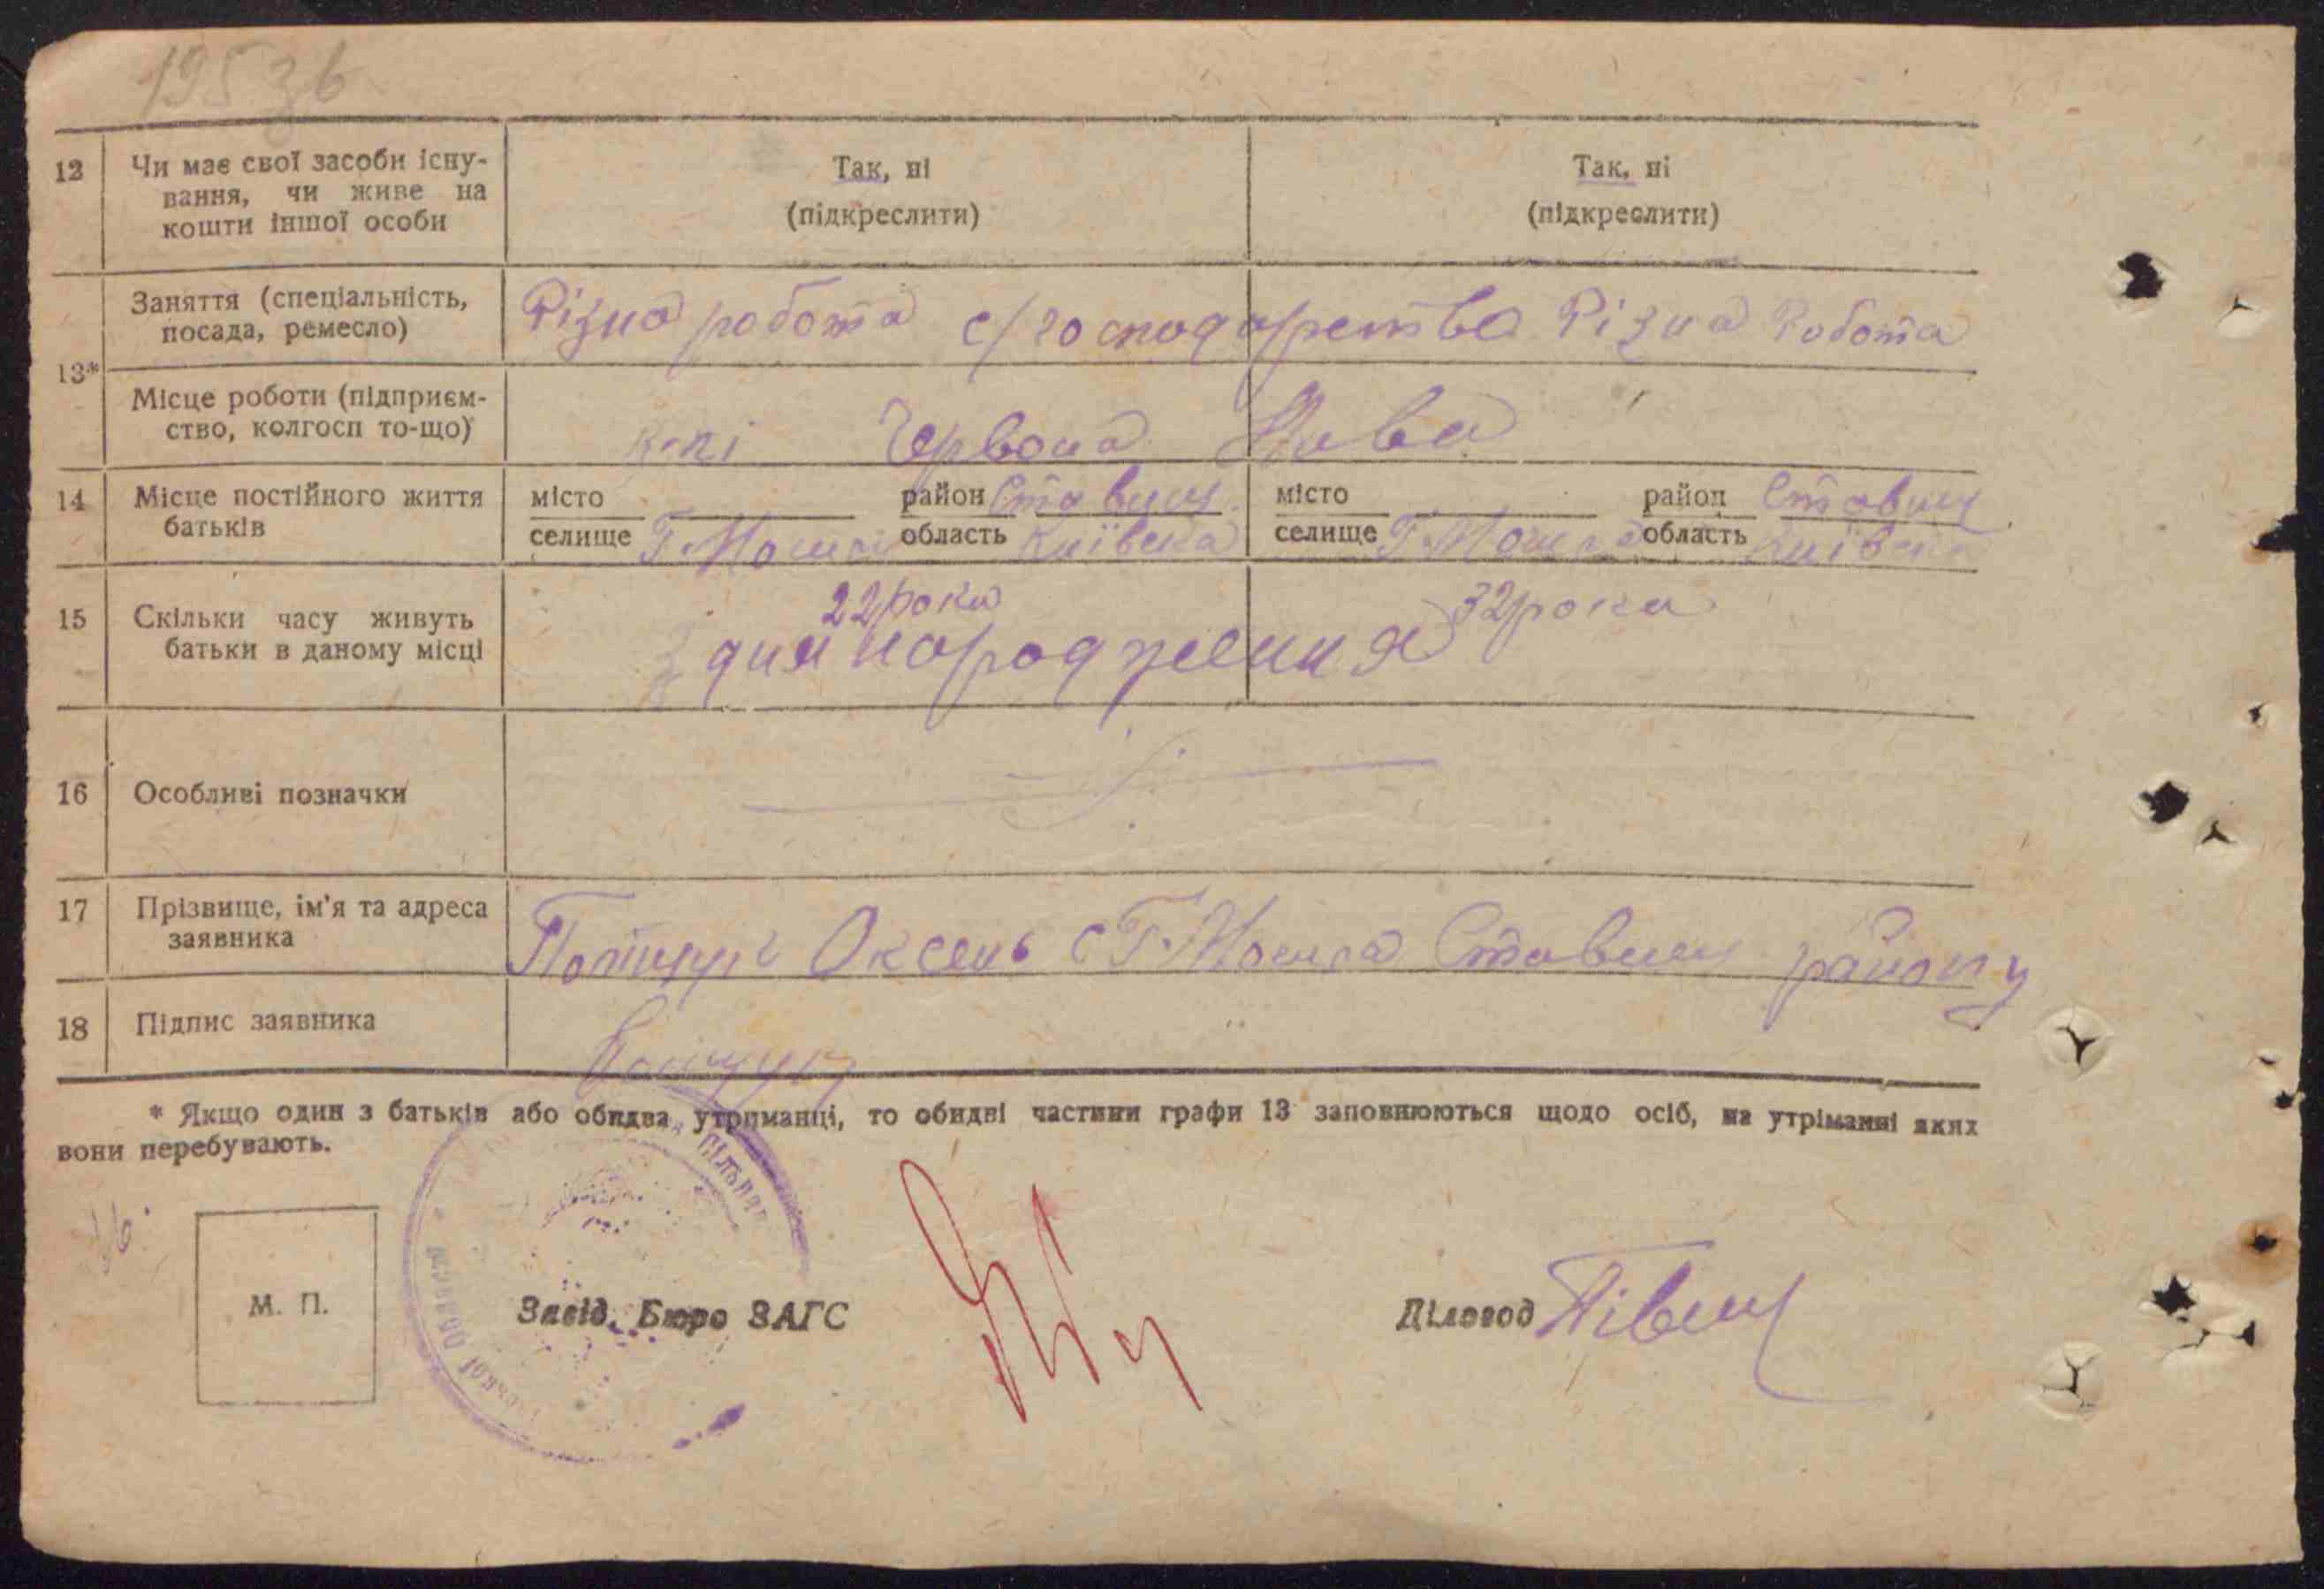 195зв
12 Чи має свої засоби існу-
вання, чи живе на
кошти іншої особи
Так, ні
(підкреслити)
Так, ні
(підкреслити)
13*
Заняття (спеціальність,
посада, ремесло)
Різна робота с/господарства Різна робота
Місце роботи (підприєм-
ство, колгосп то-що)
Червона Нива
14 Місце постійного життя
батьків
місто район Ставищ
селище область Київська
місто район Ставищ
селище область Київськ
15 Скільки часу живуть
батьки в даному місці
22 роки 32 роки
з дня народження
16 Особливі позначки
17 Прізвище, ім'я та адреса
заявника
Оксень с Ставищ району
18 Підпис заявника
* Якщо один з батьків або обидва утриманці, то обидві частини графи 13 заповнюються щодо осіб, на утріманні яких
вони перебувають.
М. П.
Завід. Бюро ЗАГС
Діловод